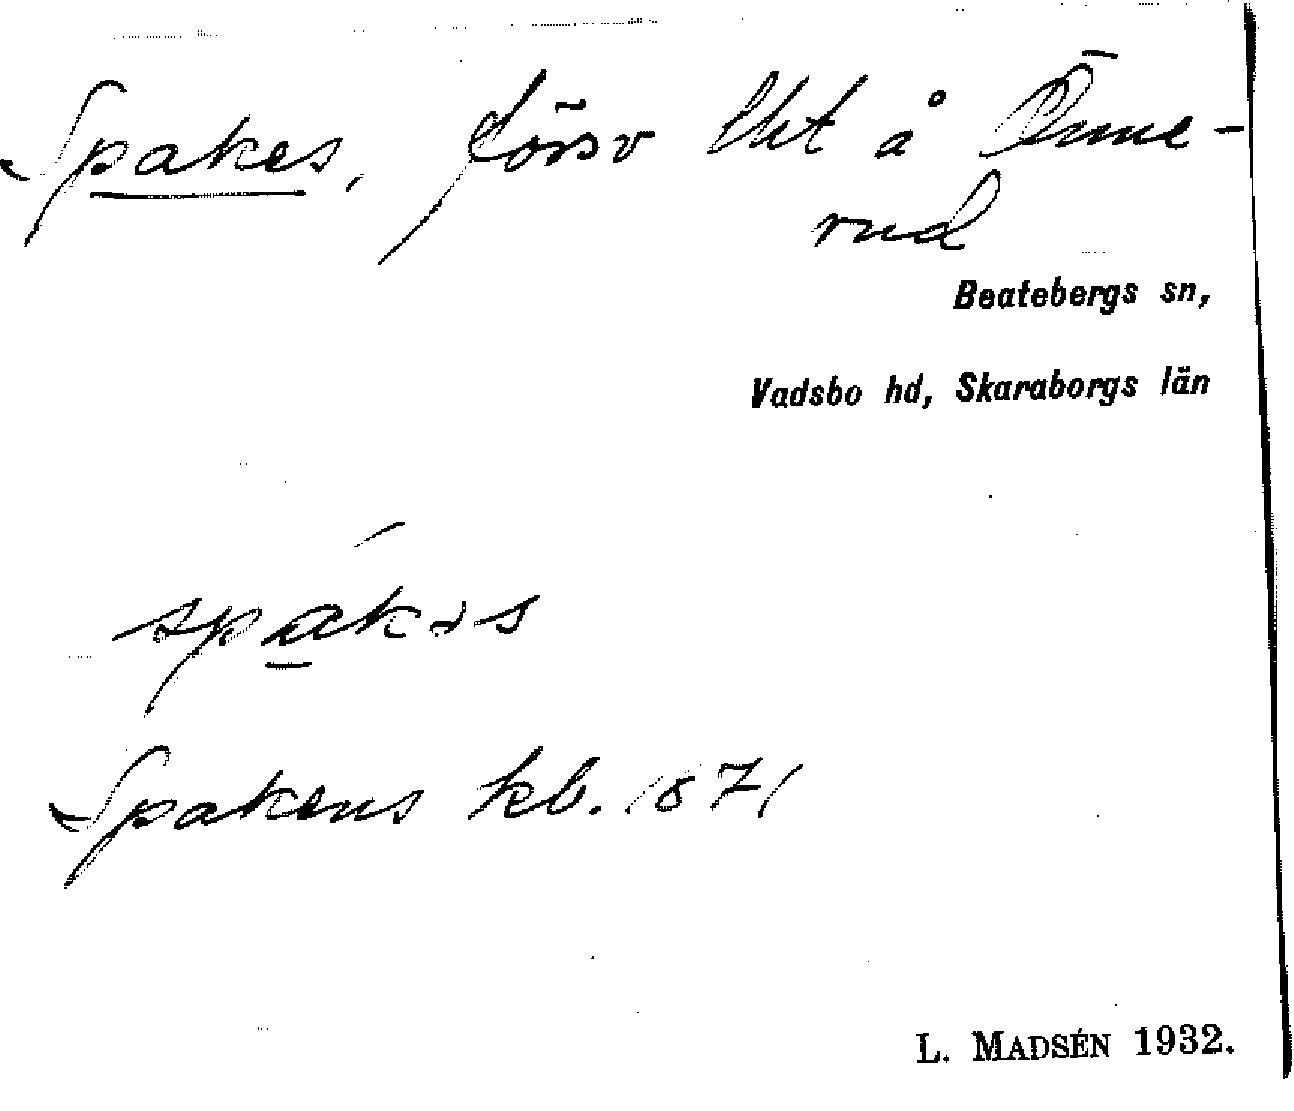 Spakes, försv lht å Önne-
rud
Beatebergs sn,
Vadsbo hd, Skaraborgs län
spakəs
Spakens kb. 1871
L. MADSÉN 1932.